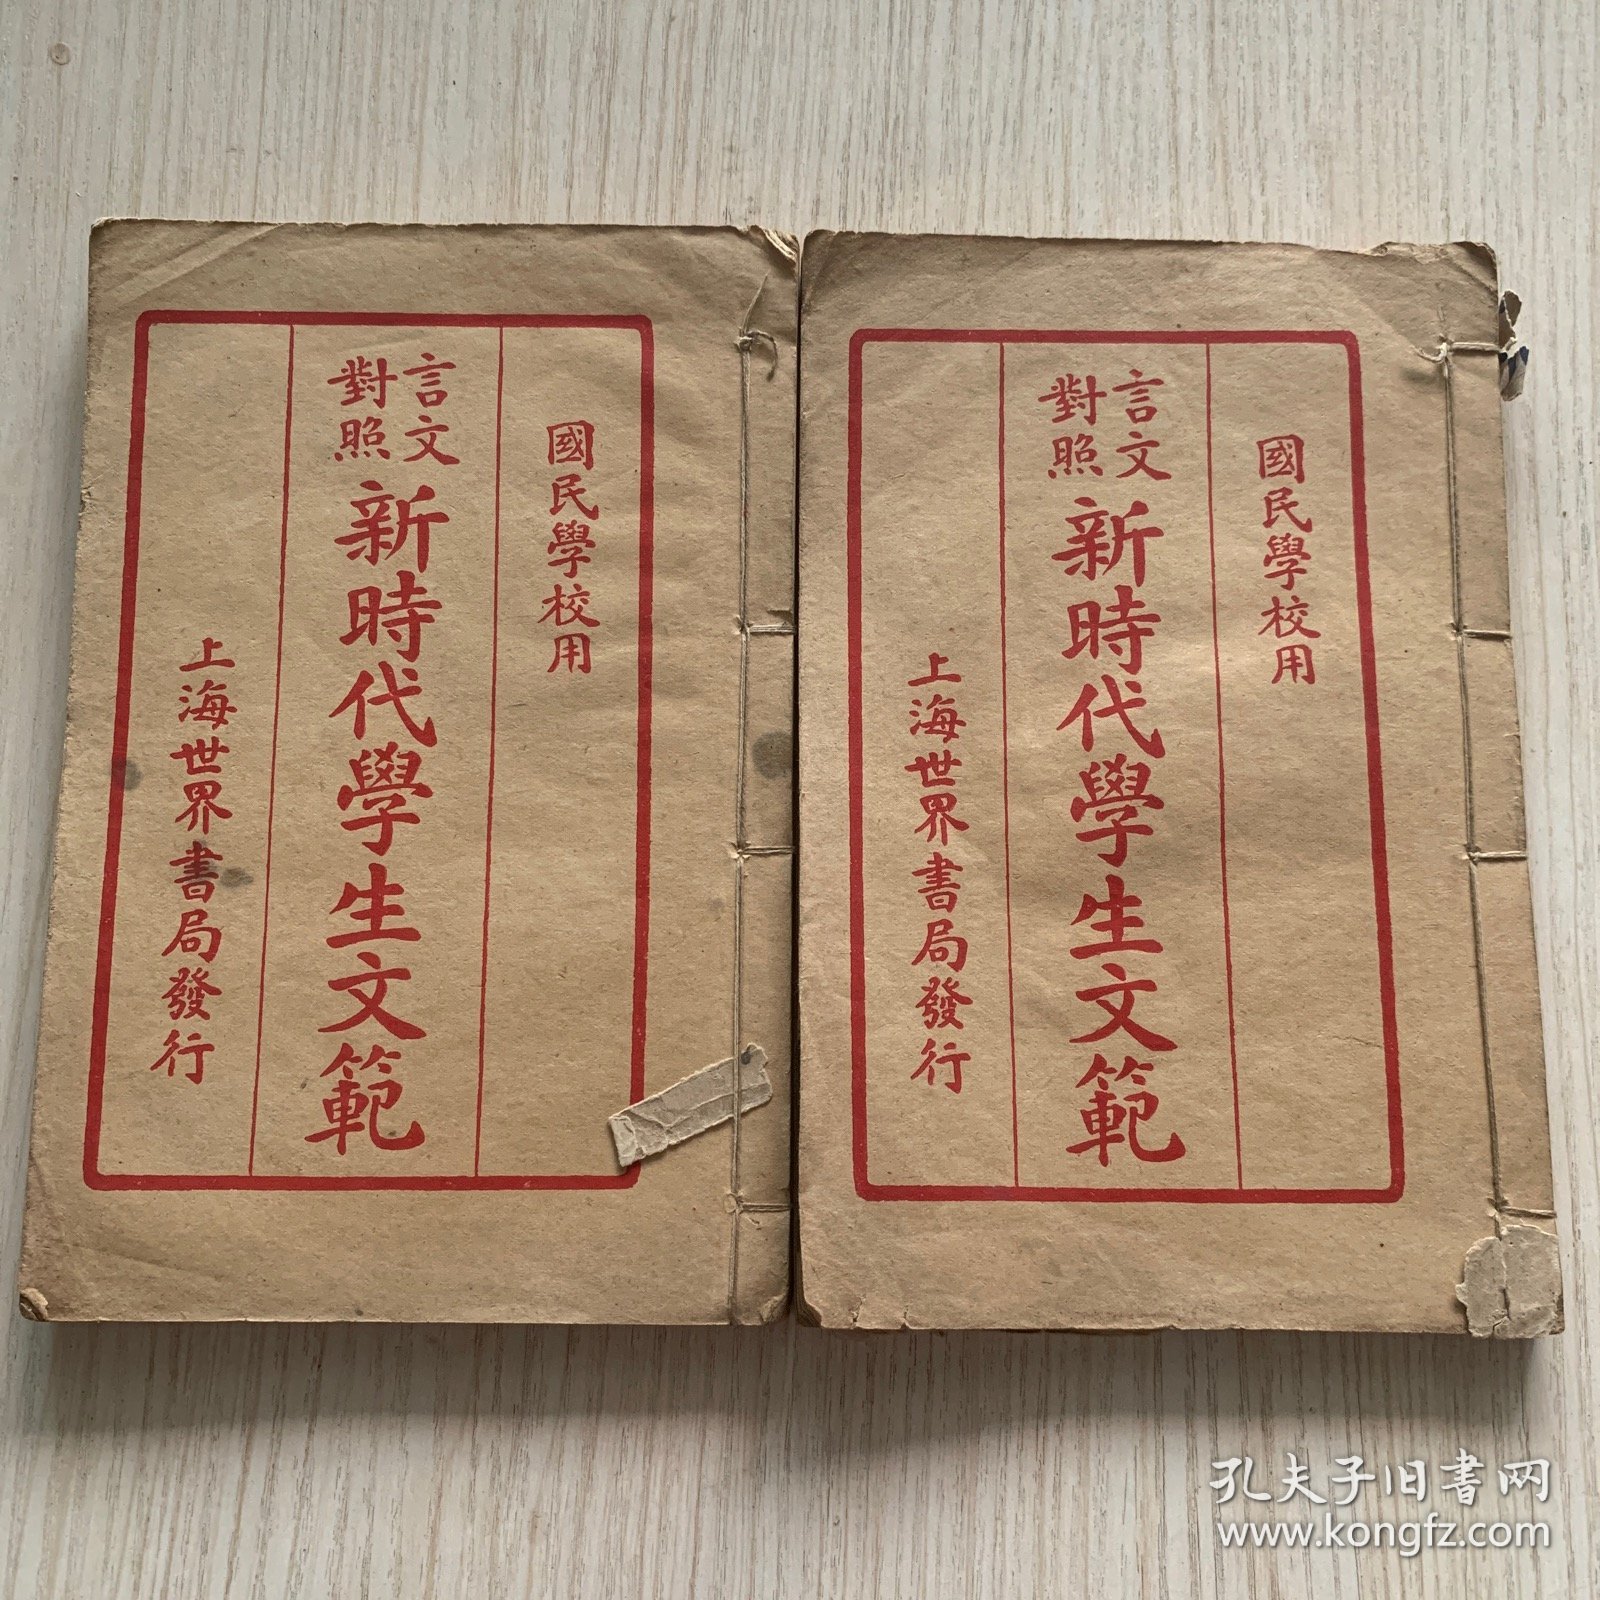 國民學校用
言文
對照
新時代學生文範
上海世界書局發行
國民學校用
言文
對照
新時代學生文範
上海世界書局發行
孔夫子旧书网
www.kongfz.com